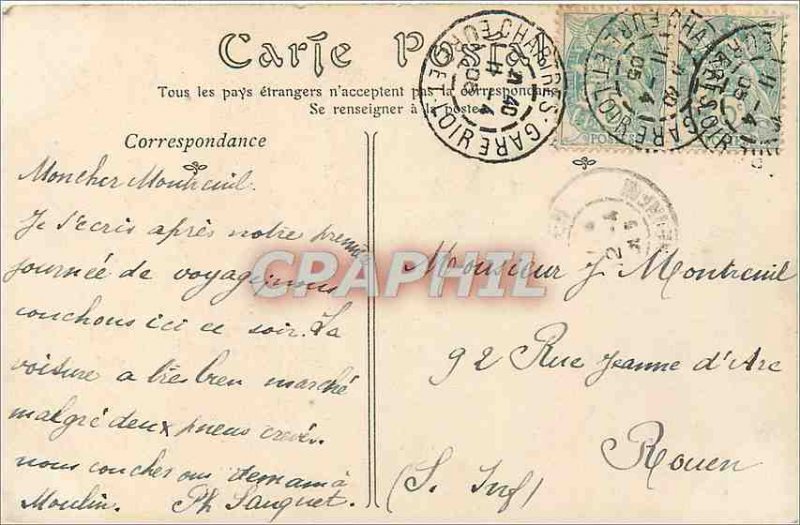 Carte Postale
Tous les pays étrangers n'acceptent pas la correspondance
Se renseigner à la poste
Correspondance
Mon cher Montreuil.
Je t'écris après notre première
journée de voyage, nous
couchons ici ce soir. La
voiture a très bien marché
malgré deux pneus crevés.
nous coucherons demain à
Moulin. Ph Sauquet.
CHARTRES-GARE
EURE-ET-LOIR
11 40
4 -4
05
Monsieur J Montreuil
92 Rue Jeanne d'Arc
Rouen
(S. Inf)
CPARAMA